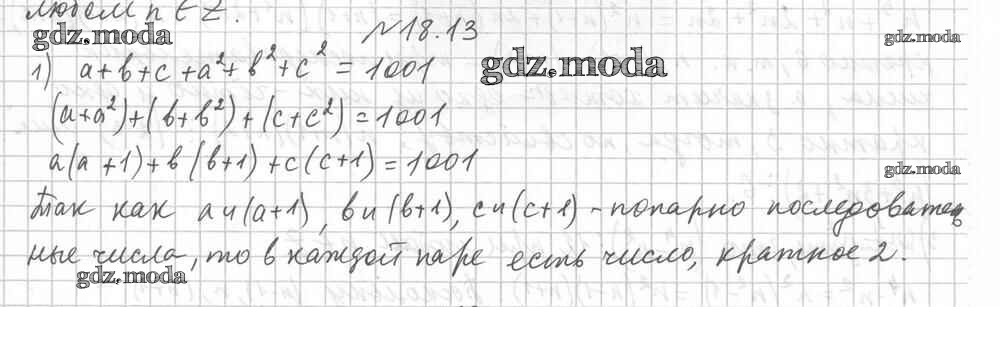 любом n ∈ Z.
gdz.moda
№18.13
gdz.moda
1) a+b+c+a²+b²+c² = 1001
gdz.moda
(a+a²)+(b+b²)+(c+c²)=1001
a(a+1)+b(b+1)+c(c+1)=1001
gdz.moda
Так как a и (a+1), b и (b+1), c и (c+1) - попарно последователь
ные числа, то в каждой паре есть число, кратное 2.
gdz.moda